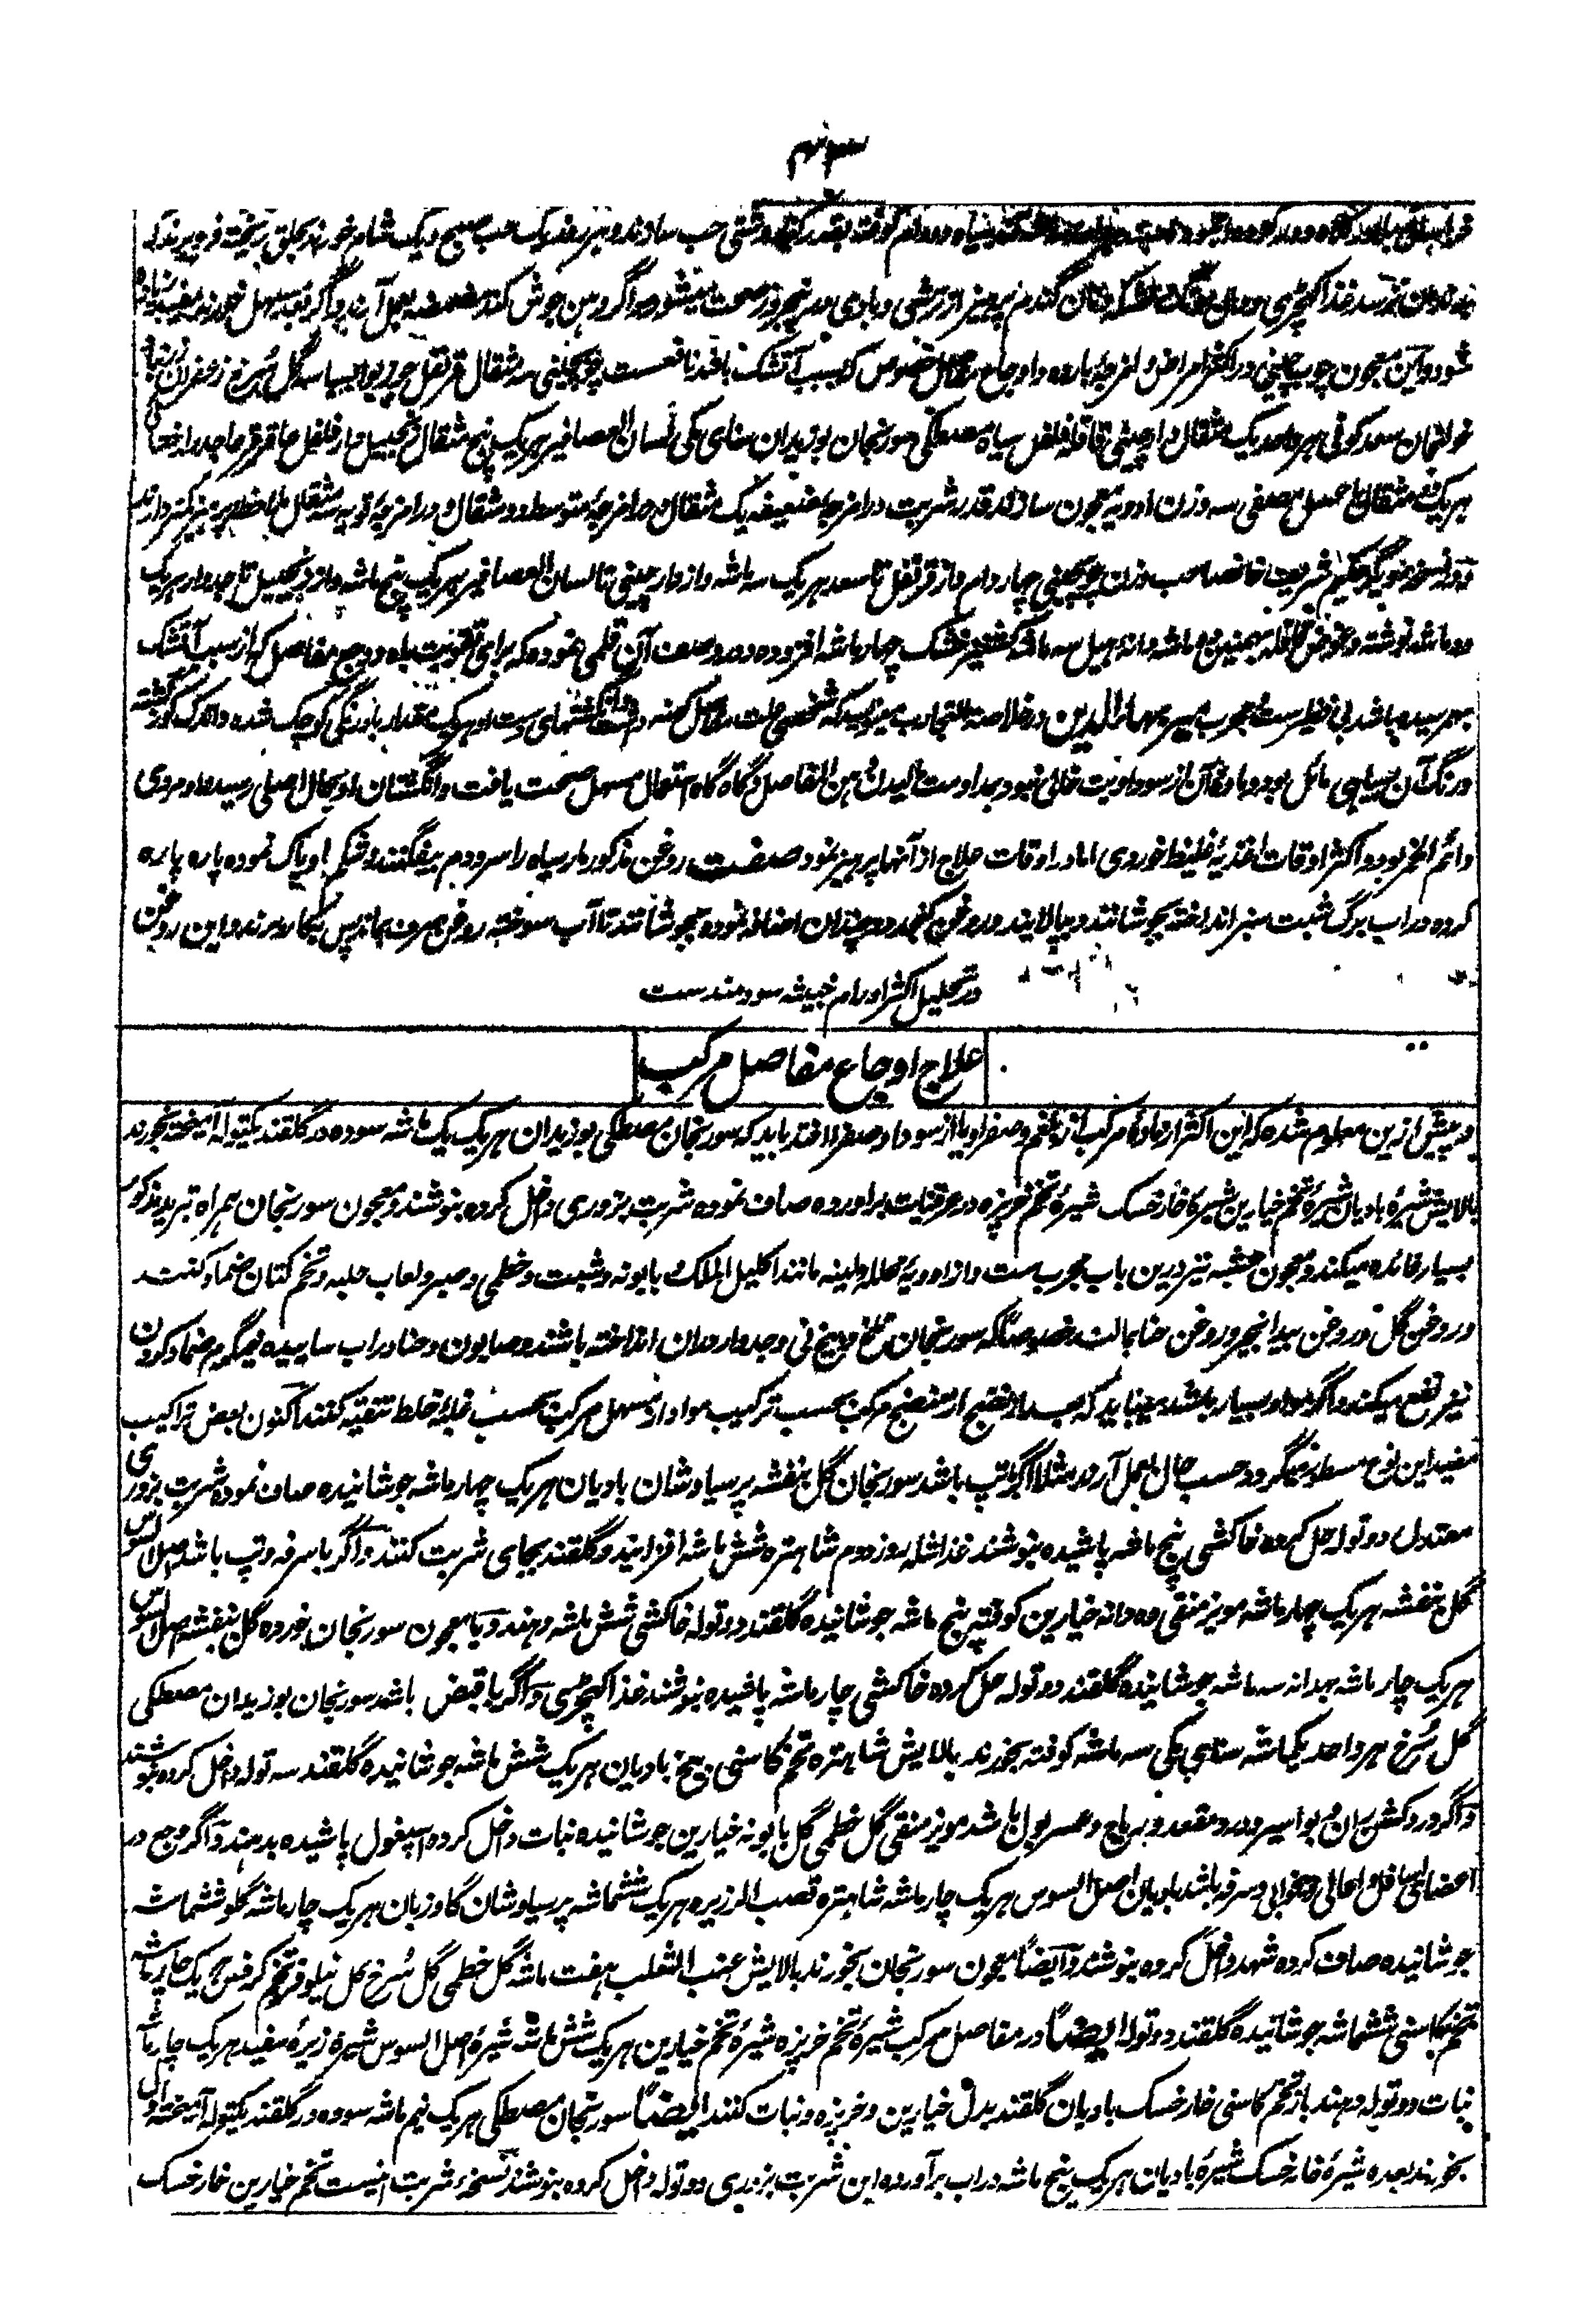 حب سازند و هر روز یک حب صبح و یک شام خورند بحلق ریخته فرو برند که
نان گندم پرهیز از ترشی و بادی صحت میشود و اگر دهن جوش کند مضمضه بعمل آرند و اگر بعد مسهل خورند مفید
شود و این معجون چوب چینی در اکثر امراض و امزجهٔ بارده و اوجاع مفاصل خصوص که بسبب آتشک باشد نافعست چوبچینی سه مثقال قرنفل جوزبوا بسباسه گل سرخ زعفران
خولنجان سعد کوفی هر واحد یک مثقال دارچینی قاقله فلفل سیاه مصطکی سورنجان بوزیدان سنای مکی لسان العصافیر هر یک پنج مثقال زنجبیل دار فلفل عاقرقرحا جدوار
هر یک مثقال با عسل مصفی سه وزن ادویه معجون سازند قدر شربت در امزجهٔ ضعیفه یک مثقال و در امزجهٔ متوسطه دو مثقال و در امزجهٔ قویه سه مثقال
و در نسخه دیگر حکیم شریف خانصاحب وزن چوبچینی چهار دام و از قرنفل تا سعد هر یک سه ماشه و از دارچینی تا لسان العصافیر هر یک پنج ماشه و از زنجبیل تا جدوار هر یک
دو ماشه نوشته و عوض قاقله بهمنین ماشه و نارجیل سه ماشه کشنیز خشک چهار ماشه افزوده و در وصف آن قلمی نموده که برای تقویت باه و وجع مفاصل که از سبب آتشک
بهم رسیده باشد بی نظیرست مجرب میر بهاء الدین در خلاصة التجارب میگوید که شخصی علت مفاصل کهنه داشت انگشتهای دست او هر یک بمقدار بادرنگی کوچک شده
و رنگ آن بسیاهی مائل بود و ماده آن از سوداویت خالی نبود بمداومت هن المفاصل و گاه گاه استعمال مسهل صحت یافت و انگشتان او بحال اصلی رسید و او مردی
دائم الخمر بود و اکثر اوقات اغذیهٔ غلیظ خوردی اما در اوقات علاج از آنها پرهیز نمود صفت روغن مذکور مار سیاه را سر و دم بیفگنند و شکم او پاک نموده پاره پاره
کرده در آب برگ شبت سبز انداخته بجوشانند و بپالایند و روغن کنجد دو چندان اضافه نموده بجوشانند تا آب سوخته روغن صرف بماند پس بکار برند و این روغن
در تحلیل اکثر اورام خبیثه سودمندست
علاج اوجاع مفاصل مرکب
و پیش ازین معلوم شده که این اکثر از مادهٔ مرکب از بلغم و صفرا و یا از سودا و صفرا افتد باید که سورنجان مصطکی بوزیدان هر یک یک ماشه سوده در گلقند یکتوله آمیخته بخورند
بالایش شیرهٔ بادیان شیرهٔ تخم خیارین شیرهٔ خارخسک شیرهٔ تخم خرپزه در عرقیات برآورده صاف نموده شربت بزوری داخل کرده بنوشند و معجون سورنجان همراه تبرید مذکور
بسیار فائده میکند و معجون عشبه نیز درین باب مجرب ست و از ادویهٔ محلله ملینه مانند اکلیل الملک بابونه و شبت و خطمی و صبر و لعاب حلبه و تخم کتان ضماد کنند
و روغن گل و روغن بیدانجیر و روغن حنا بمالند خصوصاً که سورنجان تلخ و بیخ نی و جدوار دران انداخته باشند و صابون و حنا در آب ساییده نیمگرم ضماد کردن
نیز نفع میکند و اگر مواد بسیار باشد میباید که بعد از نضج از منضج مرکب بحسب ترکیب مواد از مسهل مرکب بحسب غلبهٔ خلط تنقیه کنند اکنون بعض تراکیب
مفید این نوع مسطور میگردد حسب حال بعمل آرند مثلاً اگر با تپ باشد سورنجان گل بنفشه پرسیاوشان بادیان هر یک چهار ماشه جوشانیده صاف نموده شربت بزوری
معتدل دو توله حل کرده خاکشی پنج ماشه پاشیده بنوشند غذا شله روز دوم شاهتره شش ماشه افزایند و گلقند بجای شربت کنند و اگر با سرفه و تپ باشد اصل السوس
گل بنفشه هر یک چهار ماشه مویز منقی ده دانه خیارین کوفته پنج ماشه جوشانیده گلقند دو توله خاکشی شش ماشه دهند و یا معجون سورنجان خورده گل بنفشه اصل السوس
هر یک چار ماشه بهدانه سه ماشه جوشانیده گلقند دو توله حل کرده خاکشی چار ماشه پاشیده بنوشند غذا کهچڑی و اگر با قبض باشد سورنجان بوزیدان مصطکی
گل سرخ هر واحد یکماشه سنای مکی سه ماشه کوفته بخورند بالایش شاهتره تخم کاسنی بیخ بادیان هر یک شش ماشه جوشانیده گلقند سه توله داخل کرده بنوشند
و اگر درد کش ران مع بواسیر و درد مقعد و ریاح و عسر بول باشد مویز منقی گل خطمی گل بابونه خیارین جوشانیده نبات داخل کرده اسپغول پاشیده بدهند و اگر وجع در
اعضای اسافل و اعالی و بیخوابی و سرفه باشد بادیان اصل السوس هر یک چار ماشه شاهتره قصب الزریره هر یک ششماشه پرسیاوشان گاوزبان هر یک چار ماشه گلو ششماشه
جوشانیده صاف کرده شهد داخل کرده بنوشند و ایضاً معجون سورنجان بخورند بالایش عنب الثعلب هفت ماشه گل خطمی گل سرخ گل نیلوفر تخم کرفس هر یک چار ماشه
تخم کاسنی ششماشه جوشانیده گلقند دو توله ایضاً در مفاصل مرکب شیرهٔ تخم خرپزه شیرهٔ تخم خیارین هر یک شش ماشه شیرهٔ اصل السوس شیرهٔ زیرهٔ سفید هر یک چار ماشه
نبات دو توله دهند باز تخم کاسنی خارخسک بادیان گلقند بدل خیارین و خرپزه و نبات کنند ایضاً سورنجان مصطکی هر یک نیم ماشه سوده در گلقند یکتوله آمیخته اول
بخورند بعده شیرهٔ خارخسک شیرهٔ بادیان هر یک پنج ماشه در آب برآورده این شربت بزوری دو توله داخل کرده بنوشند نسخهٔ شربت اینست تخم خیارین خارخسک